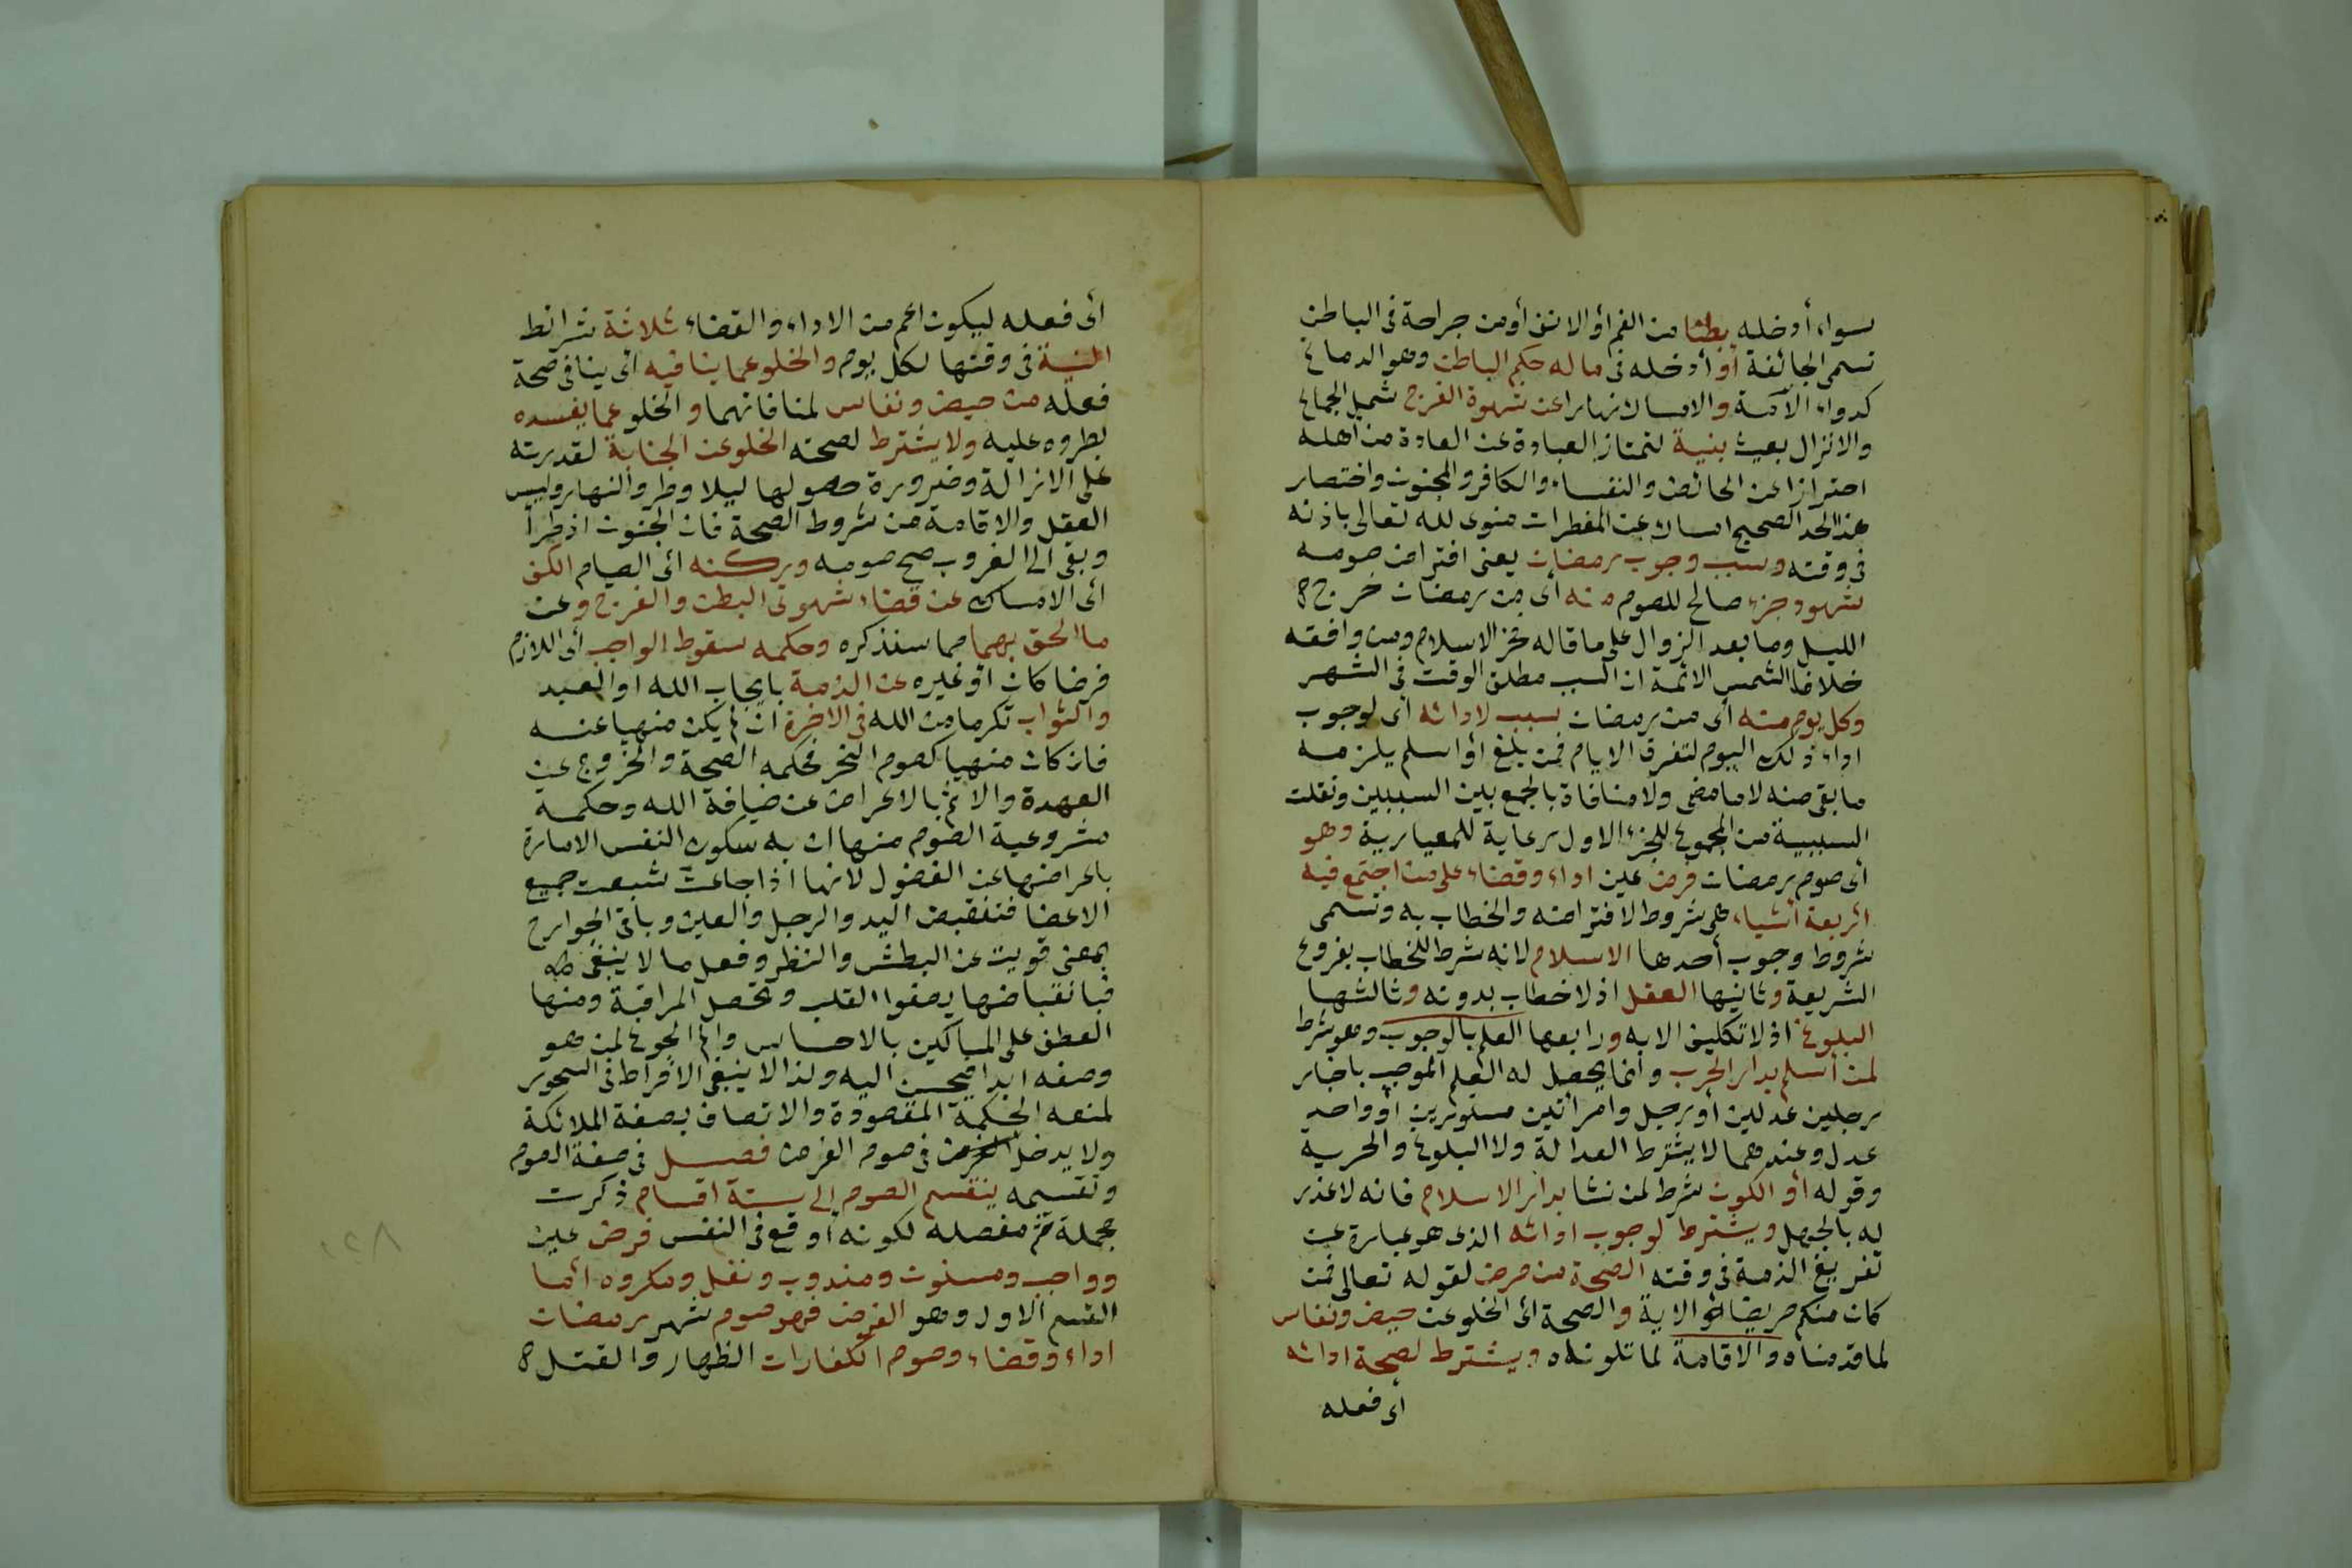 سواء أدخله بطنا من الفم أو الانف أو من جراحة فى الباطن
تسمى الجائفة أو أدخله فى ما له حكم الباطن وهو الدماغ
كدواء الآمة والامساك نهارا عن شهوة الفرج شمل الجماع
والانزال بعبث بنية لتمتاز العبادة عن العادة من أهله
احترازا عن الحائض والنفساء والكافر والمجنون واختصار
هذا الحد الصحيح امساك عن المفطرات منوى لله تعالى باذنه
فى وقته وسبب وجوب رمضان يعنى افتراض صومه
شهود جزء صالح للصوم منه أى من رمضان خرج
الليل وما بعد الزوال على ما قاله فخر الاسلام ومن وافقه
خلافا لشمس الائمة ان السبب مطلق الوقت فى الشهر
وكل يوم منه أى من رمضان سبب لادائه أى لوجوب
اداء ذلك اليوم لتفرق الايام فمن بلغ أو اسلم يلزمه
ما بقى منه لا ما مضى ولا منافاة بالجمع بين السببين ونقلت
السببية من المجموع للجزء الاول رعاية للمعيارية وهو
أى صوم رمضان فرض عين اداء وقضاء على من اجتمع فيه
اربعة أشياء هى شروط لافتراضه والخطاب به وتسمى
شروط وجوب أحدها الاسلام لانه شرط للخطاب بفروع
الشريعة وثانيها العقل اذ لا خطاب بدونه وثالثها
البلوغ اذ لا تكليف الا به ورابعها العلم بالوجوب وهو شرط
لمن أسلم بدار الحرب وانما يحصل له العلم الموجب باخبار
رجلين عدلين أو رجل وامرأتين مستورين أو واحد
عدل وعندهما لا يشترط العدالة ولا البلوغ والحرية
وقوله أو الكون شرط لمن نشا بدار الاسلام فانه لا عذر
له بالجهل ويشترط لوجوب ادائه الذى هو عبارة عن
تفريغ الذمة فى وقته الصحة من مرض لقوله تعالى فمن
كان منكم مريضا الاية والصحة أى الخلو عن حيض ونفاس
لما قدمناه والاقامة لما تلوناه ويشترط لصحة ادائه
أى فعله
أى فعله ليكون اعم من الاداء والقضاء ثلاثة شرائط
النية فى وقتها لكل يوم والخلو عما ينافيه أى ينافى صحة
فعله من حيض ونفاس لمنافاتهما والخلو عما يفسده
بطروه عليه ولا يشترط لصحته الخلو عن الجنابة لقدرته
على الازالة وضرورة حصولها ليلا وطرو النهار وليس
العقل والاقامة من شروط الصحة فان الجنون اذ طرأ
وبقى الى الغروب صح صومه وركنه أى الصيام الكف
أى الامساك عن قضاء شهوتى البطن والفرج وعن
ما الحق بهما مما سنذكره وحكمه سقوط الواجب أى اللازم
فرضا كان أو غيره عن الذمة بايجاب الله او العبد
والثواب تكرما من الله فى الاخرة ان لم يكن منهيا عنه
فان كان منهيا كصوم النحر فحكمه الصحة والخروج عن
العهدة والاثم بالاعراض عن ضيافة الله وحكمة
مشروعية الصوم منها ان به سكون النفس الامارة
باعراضها عن الفضول لانها اذا جاعت شبعت جميع
الاعضا فتنقبض اليد والرجل والعين وباقى الجوارح
بمعنى قويت عن البطش والنظر وفعل ما لا ينبغى
فبانقباضها يصفوا القلب وتحصل المراقبة ومنها
العطف على المساكين بالاحساس والم الجوع لمن هو
وصفه ابدا فيحسن اليه ولذا لا ينبغى الافراط فى السحور
لمنعه الحكمة المقصودة والاتصاف بصفة الملائكة
ولا يدخل فى صوم الفرض فصل فى صفة الصوم
وتقسيمه ينقسم الصوم الى ستة اقسام ذكرت
مجملة ثم مفصله لكونه أوقع فى النفس فرض عين
وواجب ومسنون ومندوب ونفل ومكروه أما
القسم الاول وهو الفرض فهو صوم شهر رمضان
اداء وقضاء وصوم الكفارات الظهار والقتل